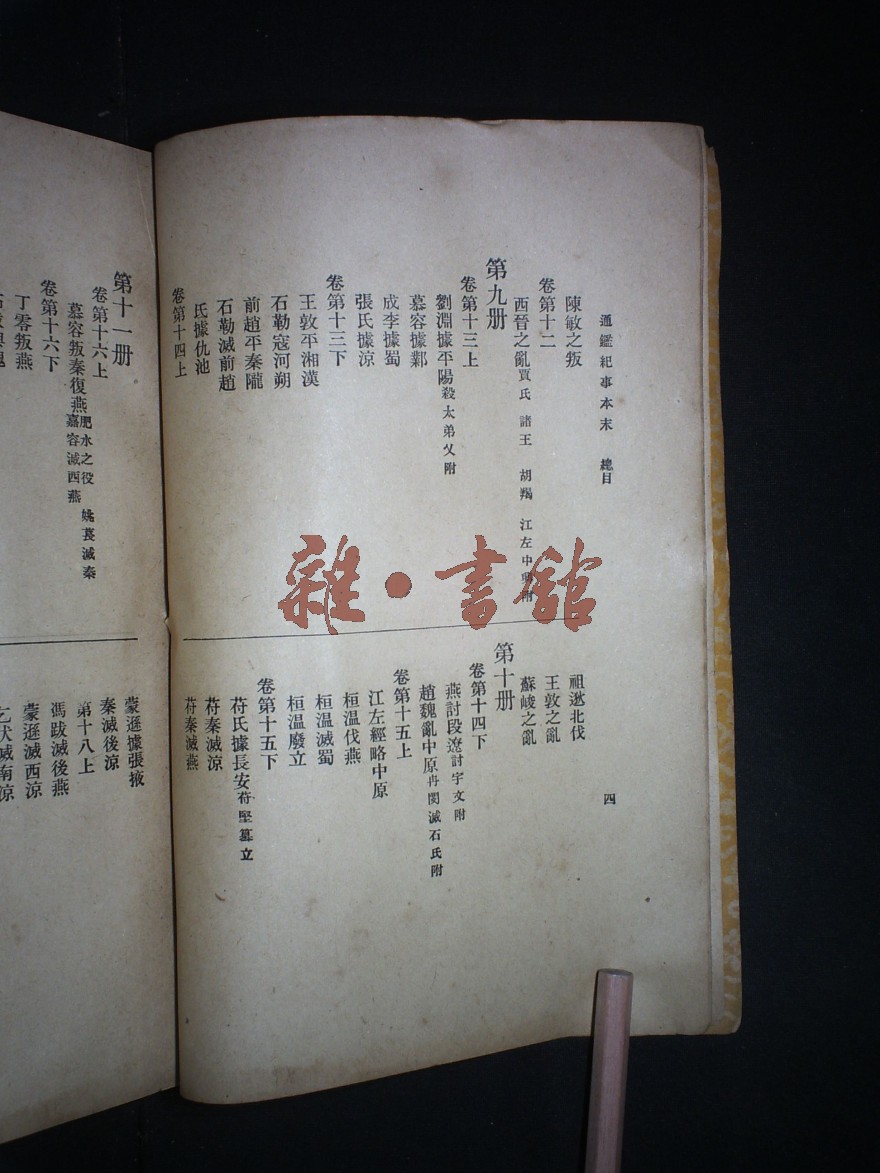 通鑑紀事本末 總目
四
陳敏之叛
卷第十二
西晉之亂賈氏 諸王 胡羯 江左中興附
第九册
卷第十三上
劉淵據平陽殺太弟乂附
慕容據鄴
成李據蜀
張氏據涼
卷第十三下
王敦平湘漢
石勒寇河朔
前趙平秦隴
石勒滅前趙
氐據仇池
卷第十四上
祖逖北伐
王敦之亂
蘇峻之亂
第十册
卷第十四下
燕討段遼討宇文附
趙魏亂中原冉閔滅石氏附
卷第十五上
江左經略中原
桓温伐燕
桓温滅蜀
桓温廢立
卷第十五下
苻氏據長安苻堅篡立
苻秦滅涼
苻秦滅燕
第十一册
卷第十六上
慕容叛秦復燕肥水之役 姚萇滅秦
慕容滅西燕
卷第十六下
丁零叛燕
蒙遜據張掖
秦滅後涼
第十八上
馮跋滅後燕
蒙遜滅西涼
乞伏滅南涼
雜·書館